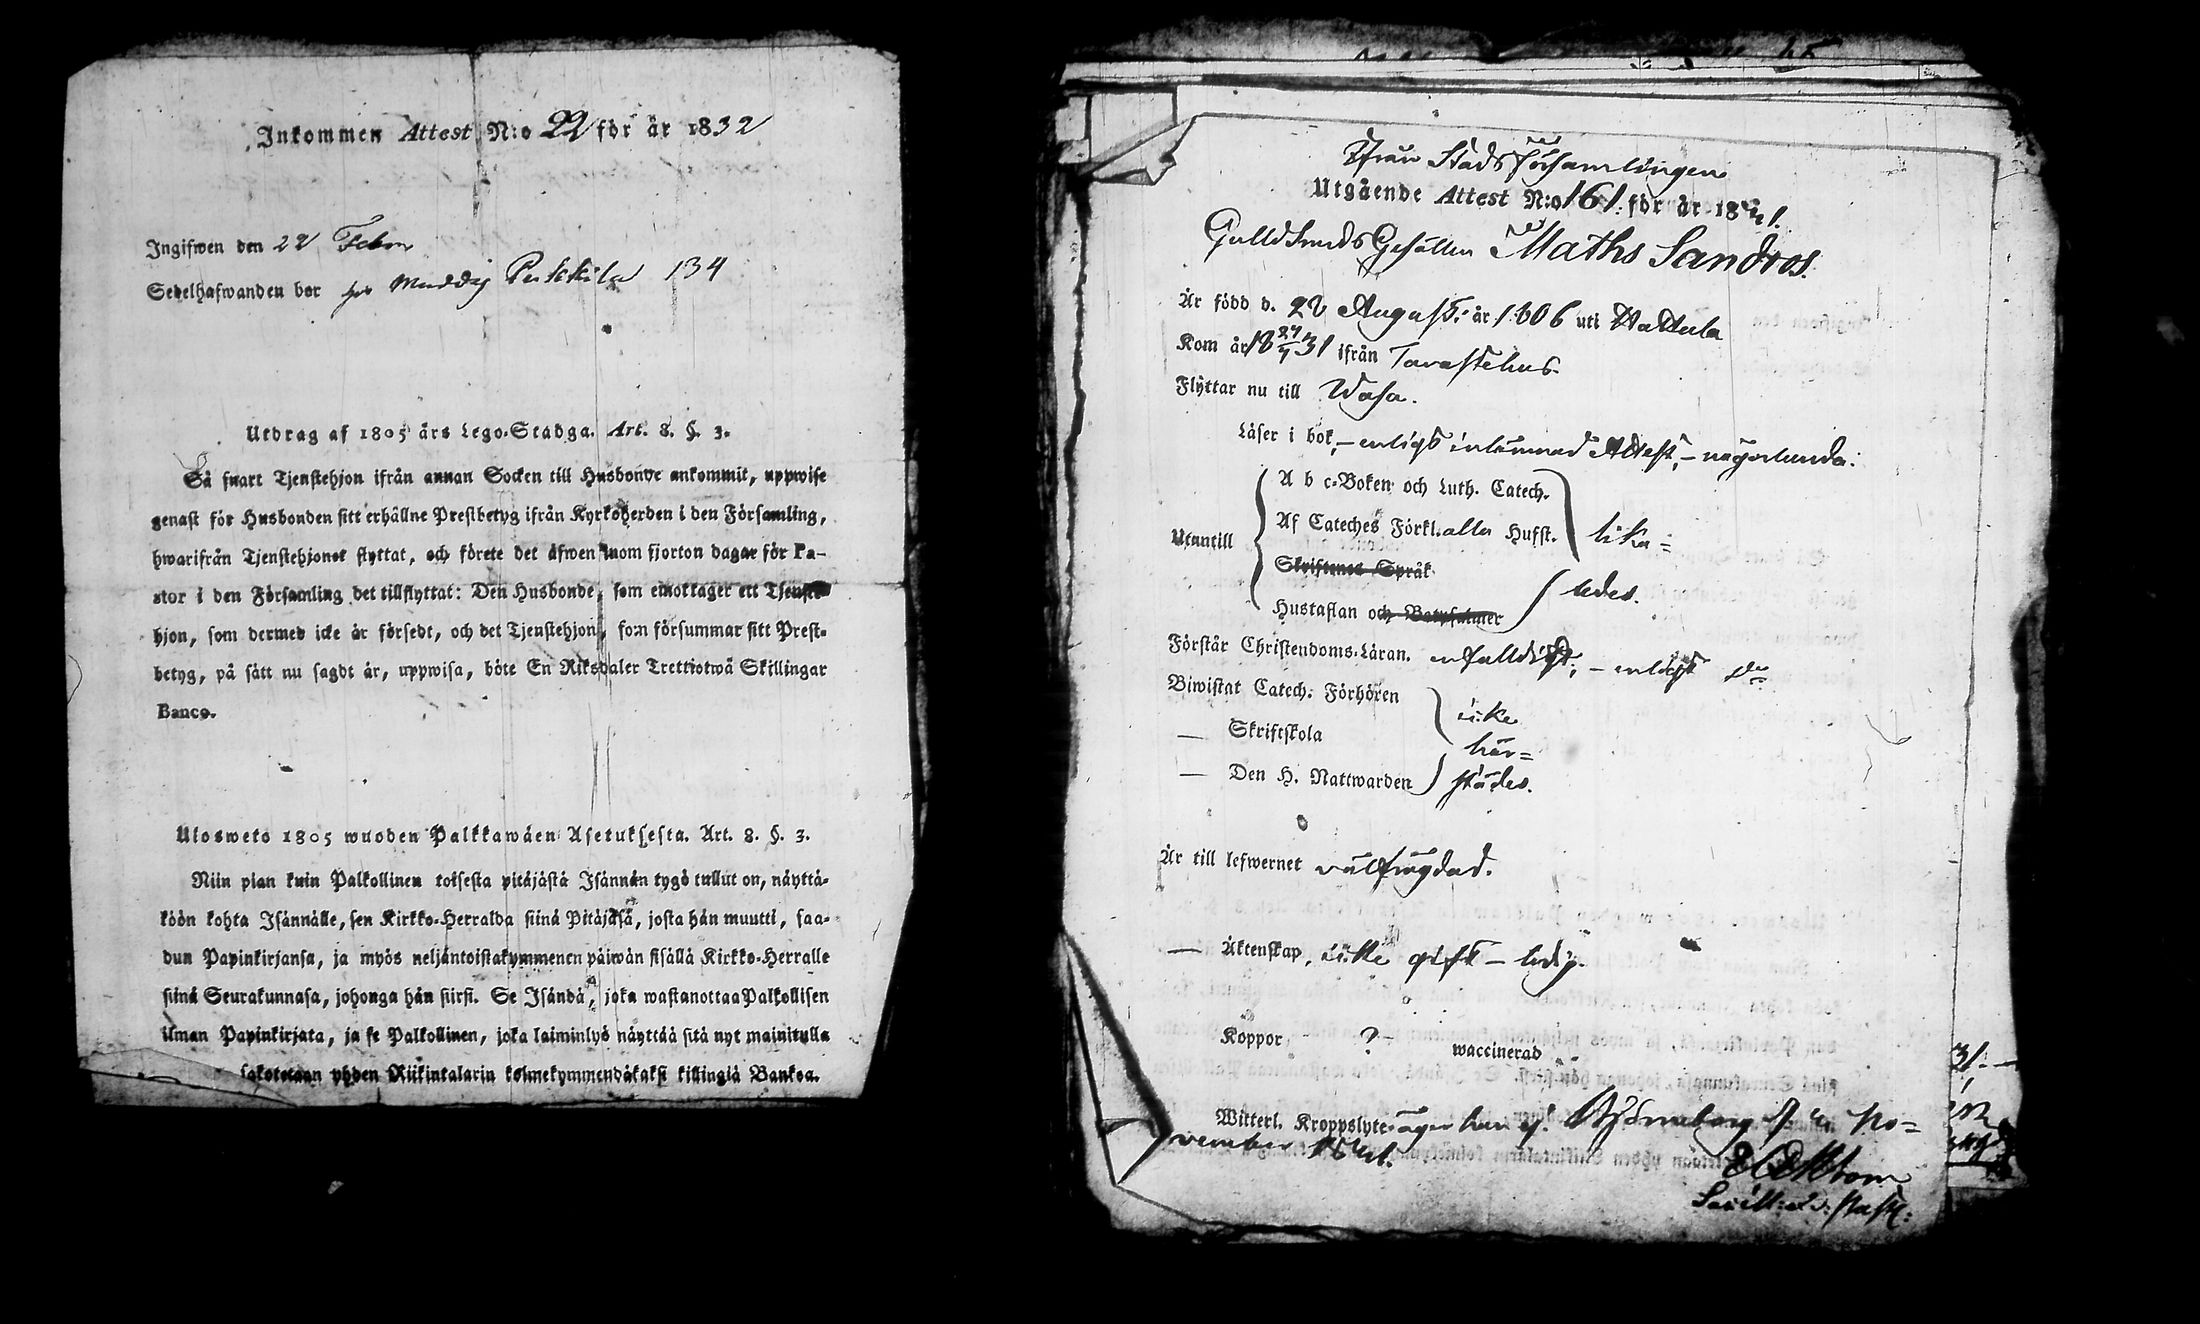 Inkommen Attest N:o 22 för år 1832
Ingifwen den 22 Febr
Sedelhafwanden bor hos 134
Utdrag af 1805 års Lego-Stadga. Art. 8. §. 3.
Så snart Tjenstehjon ifrån annan Socken till Husbonde ankommit, uppwise
genast för Husbonden sitt erhållne Prestbetyg ifrån Kyrkoherden i den Församling,
hwarifrån Tjenstehjonet flyttat, och förete det äfwen inom fjorton dagar för Pa-
stor i den Församling det tillflyttat: Den Husbonde, som emottager ett Tjenste-
hjon, som dermed icke är försedt, och det Tjenstehjon, som försummar sitt Prest-
betyg, på sätt nu sagdt är, uppwisa, böte En Riksdaler Trettiotwå Skillingar
Banco.
Ulosweto 1805 wuoden Palkkawäen Asetuksesta. Art. 8. §. 3.
Niin pian kuin Palkollinen toisesta pitäjästä Isännän tygö tullut on, näyttä-
köön kohta Isännälle, sen Kirkko-Herralda siinä Pitäjäsä, josta hän muutti, saa-
dun Papinkirjansa, ja myös neljäntoistakymmenen päiwän sisällä Kirkko-Herralle
siinä Seurakunnasa, johonga hän siirsi. Se Isändä, joka wastanottaa Palkollisen
ilman Papinkirjata, ja se Palkollinen, joka laiminlyö näyttää sitä nyt mainitulla
sakotetaan yhden Riikintalarin kolmekymmendäkaksi killingiä Bankoa.
Ifrån Stads församlingen
Utgående Attest N:o 161 för år 1841.
Gulldsmeds Gesällen Maths Sandros.
Är född d. 22 Augusti år 1806 uti Hattula
Kom år 18 27/7 31 ifrån Tavastehus.
Flyttar nu till Wasa.
Läser i bok, – enligt inlemnad Attest, – någorlunda.
A b c-Boken och Luth. Catech.
Af Cateches Förkl. alla Husst. lika=
Utantill
Skriftenes Språk
Hustaflan och Botpsalmer ledes.
Förstår Christendoms-Läran. enfalldigt; – enligt do
Biwistat Catech. Förhören icke
— Skriftskola här=
— Den H. Nattwarden städes.
Är till lefwernet välfrägdad.
— Äktenskap, icke gift – ledig.
Koppor ? waccinerad
Witterl. Kroppslyte äger han ej. Björneborg d. 4 No=
vember 1841.